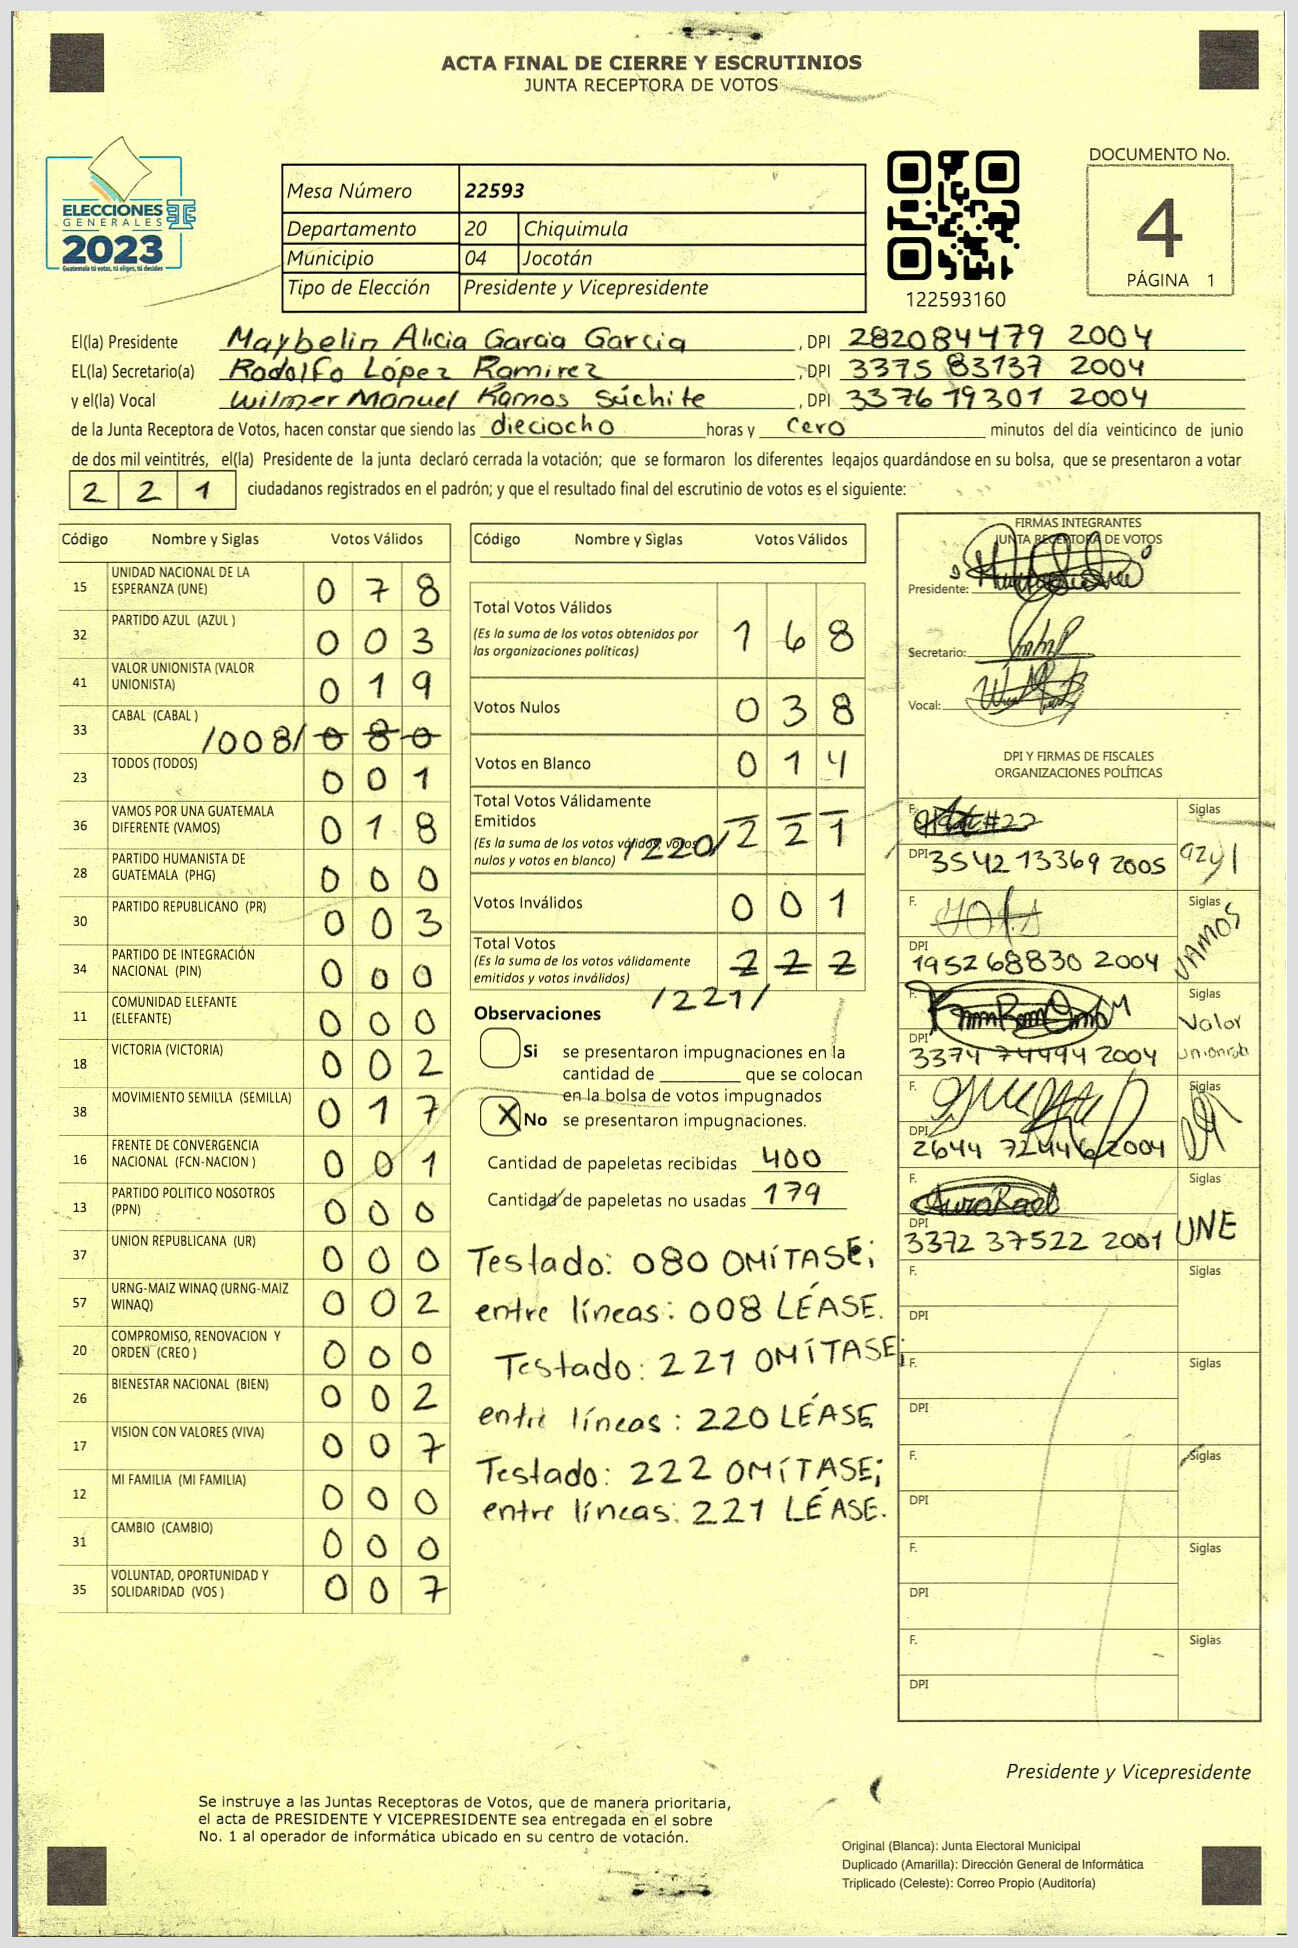 ACTA FINAL DE CIERRE Y ESCRUTINIOS
JUNTA RECEPTORA DE VOTOS
ELECCIONES
GENERALES
2023
Guatemala tú votas, tú eliges, tú decides
Mesa Número 22593
Departamento 20 Chiquimula
Municipio 04 Jocotán
Tipo de Elección Presidente y Vicepresidente
122593160
DOCUMENTO No.
4
PÁGINA 1
El(la) Presidente Maybelin Alicia Garcia Garcia , DPI 282084479 2004
EL(la) Secretario(a) Rodolfo López Ramirez , DPI 3375 83137 2004
y el(la) Vocal Wilmer Manuel Ramos Súchite , DPI 3376 19301 2004
de la Junta Receptora de Votos, hacen constar que siendo las dieciocho horas y cero minutos del día veinticinco de junio
de dos mil veintitrés, el(la) Presidente de la junta declaró cerrada la votación; que se formaron los diferentes legajos guardándose en su bolsa, que se presentaron a votar
2 2 1 ciudadanos registrados en el padrón; y que el resultado final del escrutinio de votos es el siguiente:
Código Nombre y Siglas Votos Válidos
15 UNIDAD NACIONAL DE LA ESPERANZA (UNE) 0 7 8
32 PARTIDO AZUL (AZUL ) 0 0 3
41 VALOR UNIONISTA (VALOR UNIONISTA) 0 1 9
33 CABAL (CABAL ) /008/ 0 8 0
23 TODOS (TODOS) 0 0 1
36 VAMOS POR UNA GUATEMALA DIFERENTE (VAMOS) 0 1 8
28 PARTIDO HUMANISTA DE GUATEMALA (PHG) 0 0 0
30 PARTIDO REPUBLICANO (PR) 0 0 3
34 PARTIDO DE INTEGRACIÓN NACIONAL (PIN) 0 0 0
11 COMUNIDAD ELEFANTE (ELEFANTE) 0 0 0
18 VICTORIA (VICTORIA) 0 0 2
38 MOVIMIENTO SEMILLA (SEMILLA) 0 1 7
16 FRENTE DE CONVERGENCIA NACIONAL (FCN-NACION ) 0 0 1
13 PARTIDO POLITICO NOSOTROS (PPN) 0 0 0
37 UNION REPUBLICANA (UR) 0 0 0
57 URNG-MAIZ WINAQ (URNG-MAIZ WINAQ) 0 0 2
20 COMPROMISO, RENOVACION Y ORDEN (CREO ) 0 0 0
26 BIENESTAR NACIONAL (BIEN) 0 0 2
17 VISION CON VALORES (VIVA) 0 0 7
12 MI FAMILIA (MI FAMILIA) 0 0 0
31 CAMBIO (CAMBIO) 0 0 0
35 VOLUNTAD, OPORTUNIDAD Y SOLIDARIDAD (VOS ) 0 0 7
Código Nombre y Siglas Votos Válidos
Total Votos Válidos 1 6 8
(Es la suma de los votos obtenidos por
las organizaciones políticas)
Votos Nulos 0 3 8
Votos en Blanco 0 1 4
Total Votos Válidamente
Emitidos /220/ 2 2 1
(Es la suma de los votos válidos, votos
nulos y votos en blanco)
Votos Inválidos 0 0 1
Total Votos 2 2 2
(Es la suma de los votos válidamente
emitidos y votos inválidos)
/221/
Observaciones
Si se presentaron impugnaciones en la
cantidad de que se colocan
en la bolsa de votos impugnados
X No se presentaron impugnaciones.
Cantidad de papeletas recibidas 400
Cantidad de papeletas no usadas 179
Testado: 080 OMÍTASE;
entre líneas: 008 LÉASE.
Testado: 221 OMÍTASE;
entre líneas: 220 LÉASE
Testado: 222 OMÍTASE;
entre líneas: 221 LÉASE.
FIRMAS INTEGRANTES
JUNTA RECEPTORA DE VOTOS
Presidente:
Secretario:
Vocal:
DPI Y FIRMAS DE FISCALES
ORGANIZACIONES POLÍTICAS
F. Siglas
DPI 3542 13369 2005 azul
F. Siglas
DPI 1952 68830 2004 VAMOS
F. Siglas
DPI 3374 74494 2004 Valor Unionista
F. Siglas
DPI 2644 72446 2004
F. Siglas
DPI 3372 37522 2001 UNE
F. Siglas
DPI
F. Siglas
DPI
F. Siglas
DPI
F. Siglas
DPI
F. Siglas
DPI
Presidente y Vicepresidente
Se instruye a las Juntas Receptoras de Votos, que de manera prioritaria,
el acta de PRESIDENTE Y VICEPRESIDENTE sea entregada en el sobre
No. 1 al operador de informática ubicado en su centro de votación.
Original (Blanca): Junta Electoral Municipal
Duplicado (Amarilla): Dirección General de Informática
Triplicado (Celeste): Correo Propio (Auditoría)